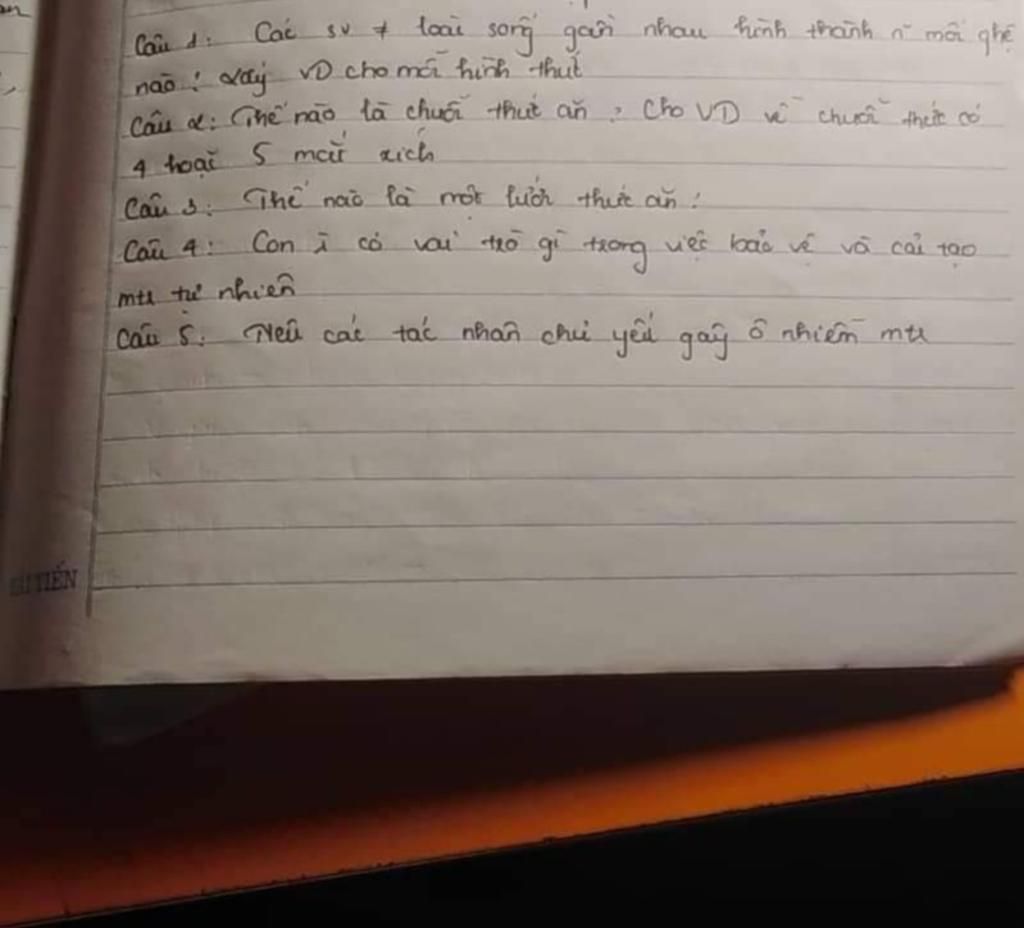 Câu 1: Các sv ≠ loài sống gần nhau hình thành n~ mối qhệ
nào? Lấy VD cho mỗi hình thức
Câu 2: Thế nào là chuỗi thức ăn? Cho VD về chuỗi thức có
4 hoặc 5 mắt xích
Câu 3: Thế nào là một lưới thức ăn?
Câu 4: Con ng có vai trò gì trong việc bảo vệ và cải tạo
mtr tự nhiên
Câu 5: Nêu các tác nhân chủ yếu gây ô nhiễm mtr
TIẾN